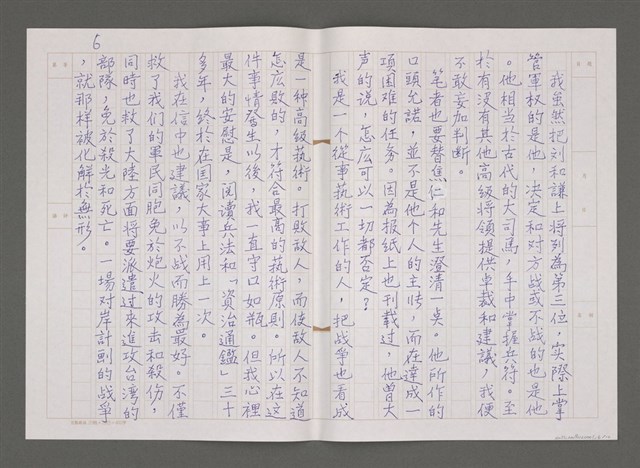 我虽然把刘和謙上将列為第三位，实際上掌
管軍权的是他，决定和对方战或不战的也是他
。他相当於古代的大司馬，手中掌握兵符。至
於有没有其他高级将領提供卓裁和建議，我便
不敢妄加判断。
笔者也要替焦仁和先生澄清一点。他所作的
口頭允諾，並不是他个人的主張，而在達成一
項困难的任务。因為报纸上也刊载过，他曾大
声的说，怎広可以一切都否定？
我是一个從事藝術工作的人，把战争也看成
是一种高级藝術。打敗敌人，而使敌人不知道
怎広敗的，才符合最高的藝術原则。所以在这
件事情發生以後，我一直守口如瓶。但我心裡
最大的安慰是，阅讀兵法和「資治通鑑」三十
多年，終於在国家大事上用上一次。
我在信中也建議，以不战而勝為最好。不僅
救了我们的軍民同胞免於炮火的攻击和殺伤，
同時也救了大陸方面将要派遣过來進攻台湾的
部隊，免於殺光和死亡。一場对岸計劃的战争
，就那样被化解於無形。
6